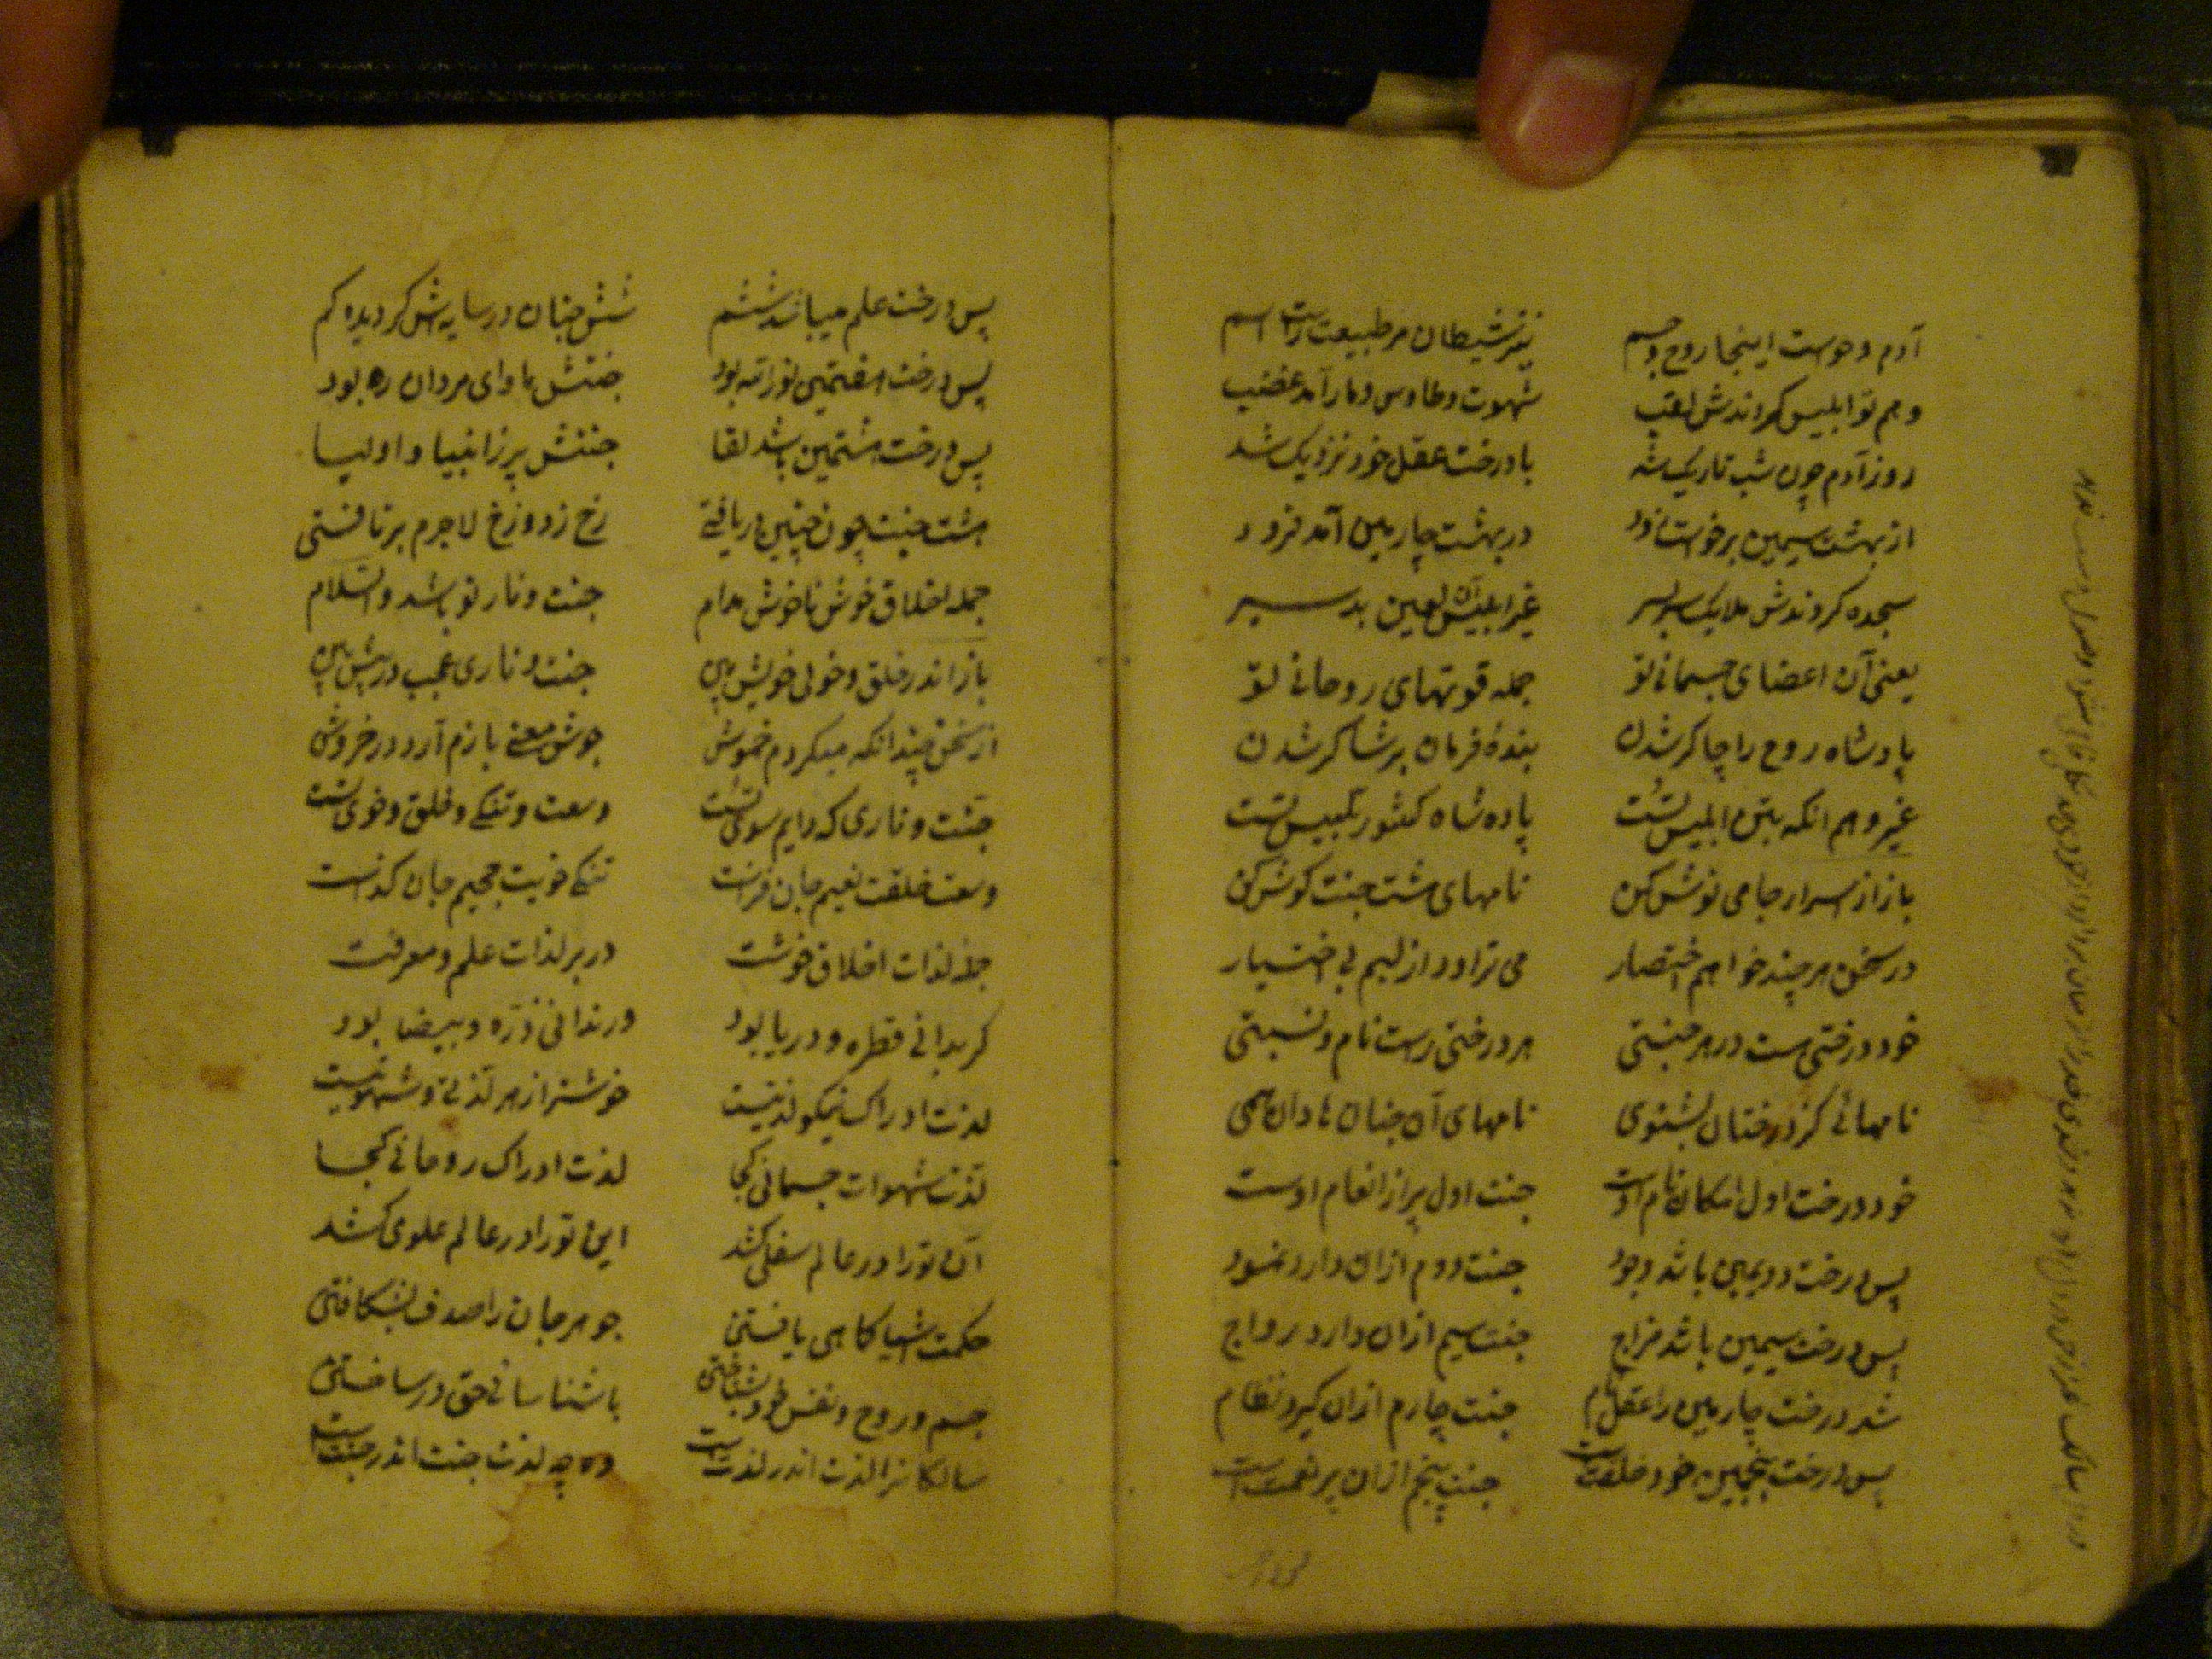 آدم و حواست اینجا روح و جسم نیز شیطان مر طبیعت راست اسم
وهم تو ابلیس کردندش لقب شهوت و طاوس و مار آمد غضب
روز آدم چون شب تاریک شد با درخت عقل خود نزدیک شد
از بهشت سیمین برخواست زود در بهشت چارمین آمد فرود
سجده کردندش ملایک سربسر غیر ابلیس آن لعین بد سیر
یعنی آن اعضای جسمانی تو جمله قوتهای روحانی تو
پادشاه روح را چاکر شدن بندهٔ فرمان بر شاکر شدن
غیر وهم انکه بتن ابلیس تست پادشاه کشور تلبیس تست
باز از اسرار جامی نوش کن نامهای هشت جنت کوش کن
در سخن هر چند خواهم اختصار می تراود از لبم بی اختیار
خود درختی هست در هر جنتی هر درختی راست نام و نسبتی
نامهائی کز درختان بشنوی نامهای آن جنان ها دان همی
خود درخت اول امکان نام اوست جنت اول پر از انعام اوست
پس درخت دویمین باشد وجود جنت دوم ازان دارد نمود
پس درخت سیمین باشد مزاج جنت سیم ازان دارد رواج
شد درخت چارمین را عقل نام جنت چارم ازان کیرد نظام
پس درخت پنجمین خود خلقت است جنت پنجم ازان پر نعمت است
پس درخت علم میباشد ششم شش جنان در سایه اش کردیده کم
پس درخت هفتمین نور آمد بود جنتش ماوای مردان ره بود
پس درخت هشتمین باشد لقا جنتش پر ز انبیا و اولیا
هشت جنت چون چنین دریافتی رخ ز دوزخ لاجرم برتافتی
جمله اخلاق خوش ناخوش مدام جنت و نار تو باشد والسلام
باز اندر خلق و خوی خویش بین جنت و ناری عجب در پیش بین
از سخن چندانکه میکردم خموش جوش معنی بازم آرد در خروش
جنت و ناری که دایم سوی تست وسعت و تنکی و خلق و خوی تست
وسعت خلقت نعیم جان فزاست تنکی خویت جحیم جان کداست
جمله لذات اخلاق خوشت در بر لذات علم و معرفت
کر بدانی قطره و دریا بود ور ندانی ذره و بیضا بود
لذت ادراک نیکو لذتیست خوشتر از هر لذتی و شهوتیست
لذت شهوات جسمانی کجا لذت ادراک روحانی کجا
آن تو را در عالم سفلی کشد این تو را در عالم علوی کشد
حکمت اشیا کاهی یافتن جوهر جان را صدف بشکافتن
جسم و روح و نفس خود بشناختن با شناسائی حق در ساختن
سالکانرا لذت اندر لذت است وه چه لذت جنت اندر جنت است